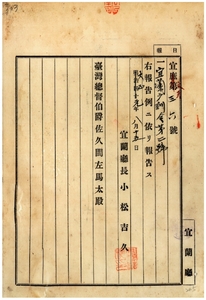 報日
宜庶第三六號
一宜蘭廳訓令第二號
右報告例ニ依リ報告ス
八月十五日
宜蘭廳長小松吉久
臺灣總督伯爵佐久間左馬太殿
宜蘭廳